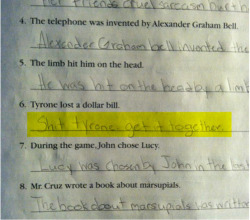 4. The telephone was invented by Alexander Graham Bell.
Alexander Graham bell invented the
5. The limb hit him on the head.
He was hit on the head by a limb
6. Tyrone lost a dollar bill.
Shit tyrone get it together
7. During the game, John chose Lucy.
Lucy was chosen by John in the
8. Mr. Cruz wrote a book about marsupials.
The book about marsupials was